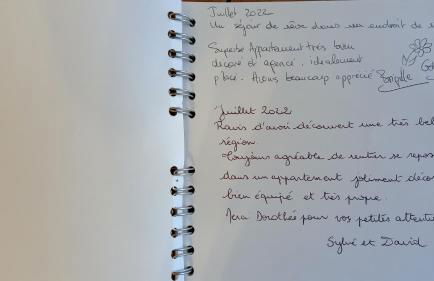 Juillet 2022
Un séjour de rêve dans un endroit de
Superbe Appartement très bien
décoré et agencé. idéalement
placé. Avons beaucoup apprécié
Juillet 2022
Ravis d'avoir découvert une très bel
région.
Toujours agréable de rentrer se repos
dans un appartement joliment déco
bien équipé et très propre.
Dorothée pour vos petites attenti
Sylvie et David